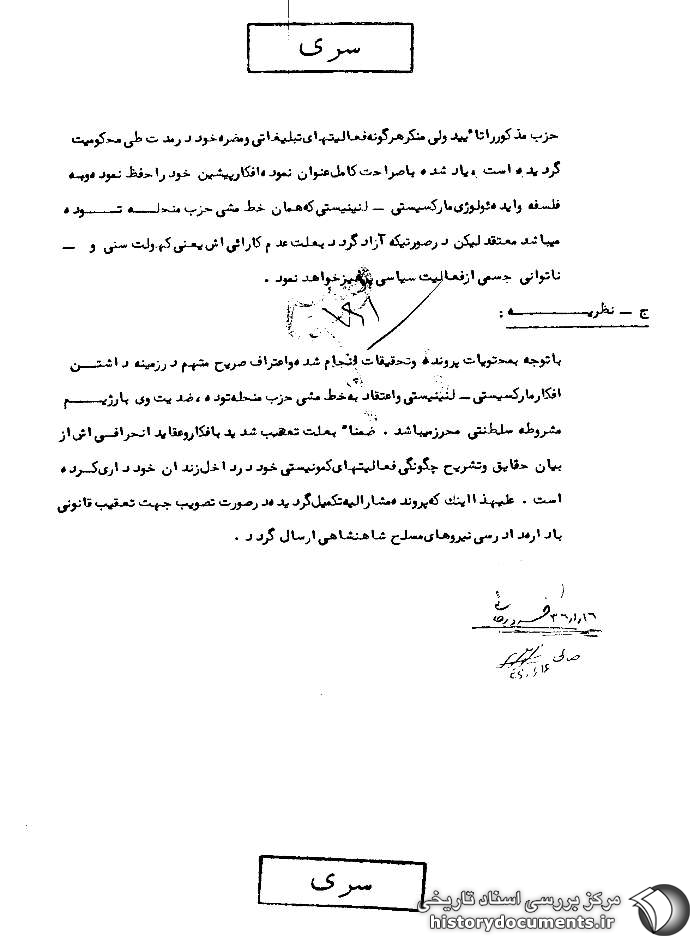 سری
حزب مذکور را تائید ولی منکر هرگونه فعالیتهای تبلیغاتی و مضره خود در مدت طی محکومیت
گردیده است ، یاد شده با صراحت کامل عنوان نموده افکار پیشین خود را حفظ نموده و به
فلسفه و ایده ئولوژی مارکسیستی ـ لنینیستی که همان خط مشی حزب منحله تـــوده
میباشد معتقد لیکن در صورتیکه آزاد گردد بعلت عدم کارائی اش یعنی کهولت سنی و ـ
ناتوانی جسمی از فعالیت سیاسی پرهیز خواهد نمود .
ج ـ نظریــــــــه :
با توجه بمحتویات پرونده و تحقیقات انجام شده و اعتراف صریح متهم در زمینه داشتن
افکار مارکسیستی ـ لنینیستی و اعتقاد به خط مشی حزب منحله توده ، ضدیت وی با رژیـــم
مشروطه سلطنتی محرز میباشد . ضمناً بعلت تعصب شدید بافکار و عقاید انحرافی اش از
بیان حقایق و تشریح چگونگی فعالیتهای کمونیستی خود در داخل زندان خودداری کــرده
است . علیهذا اینك که پرونده مشارالیه تکمیل گردیده در صورت تصویب جهت تعقیب قانونی
بادارهدادرسی نیروهای مسلح شاهنشاهی ارسال گردد .
سری
مرکز بررسی اسناد تاریخی
historydocuments.ir